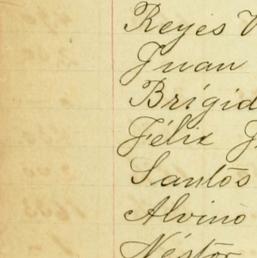 Reyes V
Juan
Brígid
Félix J
Santos
Alvino
Néstor